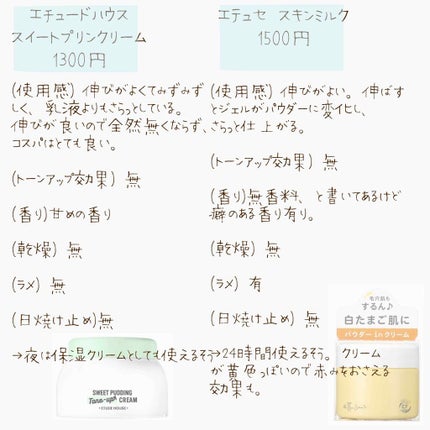 エチュードハウス
スイートプリンクリーム
1300円
(使用感) 伸びがよくてみずみず
しく、乳液よりもさらっとしている。
伸びが良いので全然無くならず、
コスパはとても良い。
(トーンアップ効果) 無
(香り)甘めの香り
(乾燥) 無
(ラメ) 無
(日焼け止め)無
→夜は保湿クリームとしても使えるそう
SWEET PUDDING
Tone-up+
CREAM
ETUDE HOUSE
エテュセ スキンミルク
1500円
(使用感) 伸びがよい。伸ばす
とジェルがパウダーに変化し、
さらっと仕上がる。
(トーンアップ効果) 無
(香り)無香料、と書いてあるけど
癖のある香り有り。
(乾燥) 無
(ラメ) 有
(日焼け止め) 無
→24時間使えるそう。クリーム
が黄色っぽいので赤みをおさえる
効果も。
毛穴肌も
するん♪
白たまご肌に
パウダー in クリーム